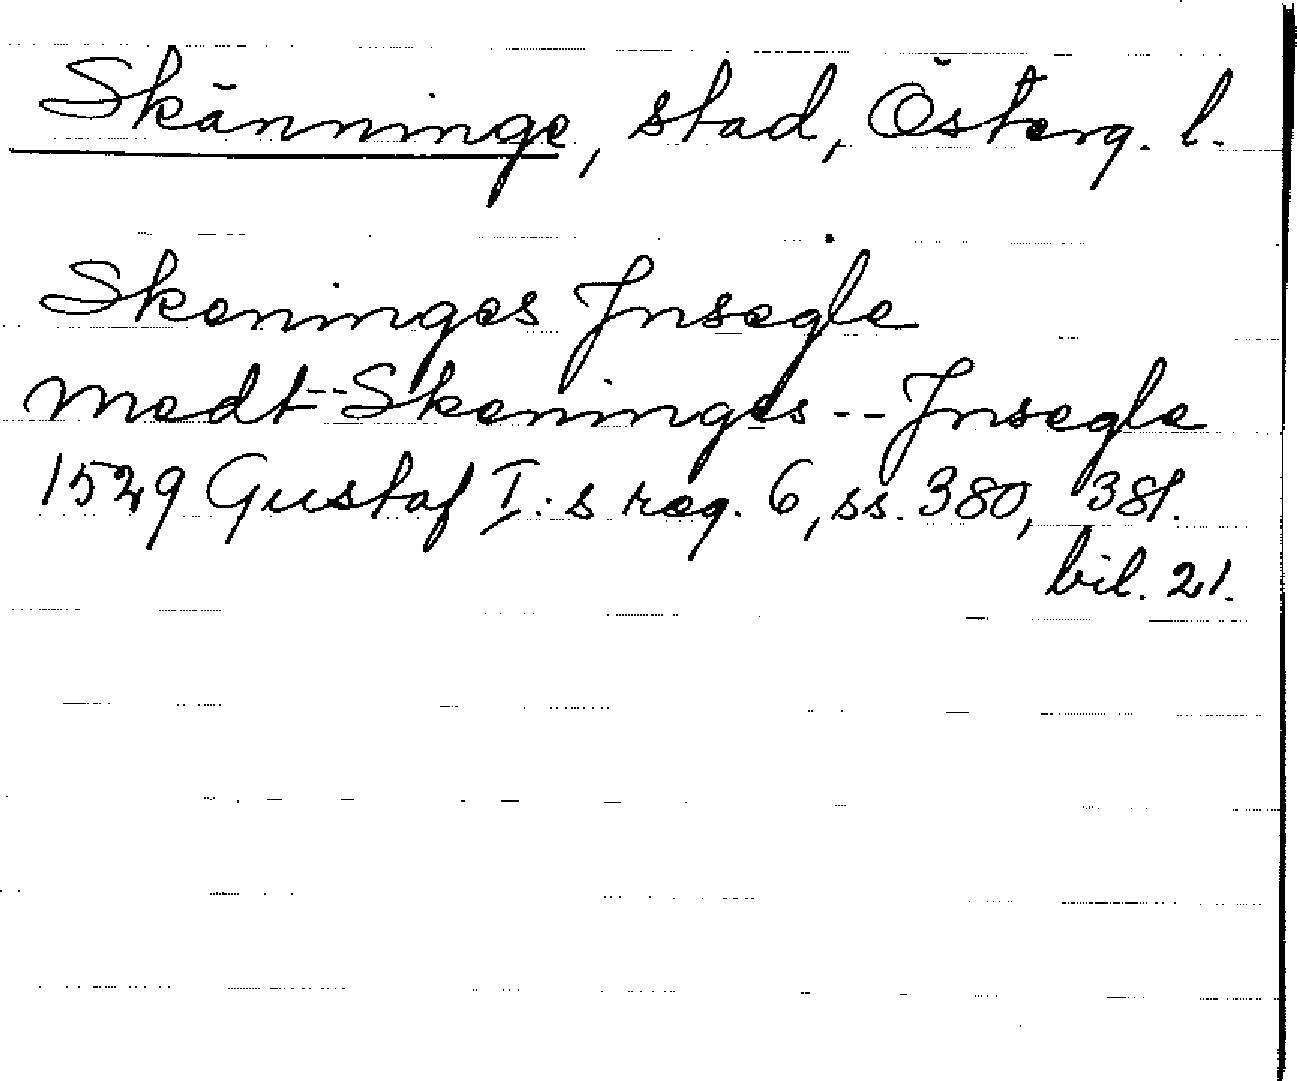 Skänninge, stad, Österg. l.
Skeninges Jnsegle
medt -- Skeninges -- Jnsegle
1529 Gustaf I:s reg. 6, ss. 380, 381.
bil. 21.